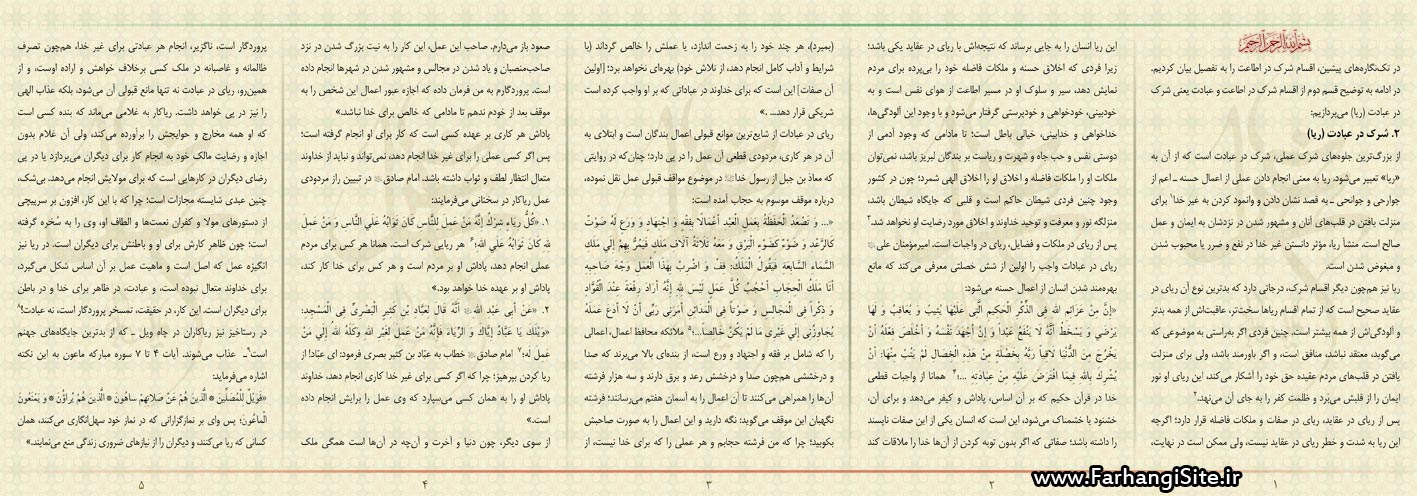 بسم الله الرحمن الرحیم
در تک‌نگاره‌های پیشین، اقسام شرک در اطاعت را به تفصیل بیان کردیم.
در ادامه به توضیح قسم دوم از اقسام شرک در اطاعت و عبادت یعنی شرک
در عبادت (ریا) می‌پردازیم:
۲. شرک در عبادت (ریا)
از بزرگ‌ترین جلوه‌های شرک عملی، شرک در عبادت است که از آن به
«ریا» تعبیر می‌شود. ریا به معنی انجام دادن عملی از اعمال حسنه ـ اعم از
جوارحی و جوانحی ـ به قصد نشان دادن و وانمود کردن به غیر خدا برای
منزلت یافتن در قلب‌های آنان و مشهور شدن در نزدشان به ایمان و عمل
صالح است. منشأ ریا، مؤثر دانستن غیر خدا در نفع و ضرر یا محبوب شدن
و مبغوض شدن است.
ریا نیز هم‌چون دیگر اقسام شرک، درجاتی دارد که بدترین نوع آن ریای در
عقاید صحیح است که از تمام اقسام ریاها سخت‌تر، عاقبت‌اش از همه بدتر
و آلودگی‌اش از همه بیشتر است. چنین فردی اگر به‌راستی به موضوعی که
می‌گوید، معتقد نباشد، منافق است، و اگر باورمند باشد، ولی برای منزلت
یافتن در قلب‌های مردم عقیده حق خود را آشکار می‌کند، این ریای او نور
ایمان را از قلبش می‌بَرد و ظلمت کفر را به جای آن می‌نهد.
پس از ریای در عقاید، ریای در صفات و ملکات فاضله قرار دارد؛ اگرچه
این ریا به شدت و خطر ریای در عقاید نیست، ولی ممکن است در نهایت،
۱
این ریا انسان را به جایی برساند که نتیجه‌اش با ریای در عقاید یکی باشد؛
زیرا فردی که اخلاق حسنه و ملکات فاضله خود را بی‌پرده برای مردم
نمایش دهد، سیر و سلوک او در مسیر اطاعت از هوای نفس است و به
خودبینی، خودخواهی و خودپرستی گرفتار می‌شود و با وجود این آلودگی‌ها،
خداخواهی و خدابینی، خیالی باطل است؛ تا مادامی که وجود آدمی از
دوستی نفس و حب جاه و شهرت و ریاست بر بندگان لبریز باشد، نمی‌توان
ملکات او را ملکات فاضله و اخلاق او را اخلاق الهی شمرد؛ چون در کشور
وجود چنین فردی شیطان حاکم است و قلبی که جایگاه شیطان باشد،
منزلگه نور و معرفت و توحید خداوند و اخلاق مورد رضایت او نخواهد شد.
پس از ریای در ملکات و فضایل، ریای در واجبات است. امیرمؤمنان علی
ریای در عبادات واجب را اولین از شش خصلتی معرفی می‌کند که مانع
بهره‌مند شدن انسان از اعمال حسنه می‌شود:
«إِنَّ مِنْ عَزَائِمِ اللهِ فِی الذِّکْرِ الْحَکِیمِ الَّتِی عَلَیْهَا یُثِیبُ وَ یُعَاقِبُ وَ لَهَا
یَرْضَی وَ یَسْخَطُ أَنَّهُ لَا یَنْفَعُ عَبْداً وَ إِنْ أَجْهَدَ نَفْسَهُ وَ أَخْلَصَ فِعْلَهُ أَنْ
یَخْرُجَ مِنَ الدُّنْیَا لَاقِیاً رَبَّهُ بِخَصْلَةٍ مِنْ هَذِهِ الْخِصَالِ لَمْ یَتُبْ مِنْهَا: أَنْ
یُشْرِكَ بِاللهِ فِیمَا افْتَرَضَ عَلَیْهِ مِنْ عِبَادَتِهِ ...؛ همانا از واجبات قطعی
خدا در قرآن حکیم که بر آن اساس، پاداش و کیفر می‌دهد و برای آن،
خشنود یا خشمناک می‌شود، این است که انسان یکی از این صفات ناپسند
را داشته باشد؛ صفاتی که اگر بدون توبه کردن از آن‌ها خدا را ملاقات کند
۲
(بمیرد)، هر چند خود را به زحمت اندازد، یا عملش را خالص گرداند (با
شرایط و آداب کامل انجام دهد، از تلاش خود) بهره‌ای نخواهد برد؛ [اولین
آن صفات] این است که برای خداوند در عباداتی که بر او واجب کرده است
شریکی قرار دهد... .»
ریای در عبادات از شایع‌ترین موانع قبولی اعمال بندگان است و ابتلای به
آن در هر کاری، مردودی قطعی آن عمل را در پی دارد؛ چنان‌که در روایتی
که معاذ بن جبل از رسول خدا در موضوع مواقف قبولی عمل نقل نموده،
درباره موقف موسوم به حجاب آمده است:
«... وَ تَصْعَدُ الْحَفَظَةُ بِعَمَلِ الْعَبْدِ أَعْمَالًا بِفِقْهٍ وَ اجْتِهَادٍ وَ وَرَعٍ لَهُ صَوْتٌ
کَالرَّعْدِ وَ ضَوْءٌ کَضَوْءِ الْبَرْقِ وَ مَعَهُ ثَلَاثَةُ آلَافِ مَلَكٍ فَیَمُرُّ بِهِمْ إِلَی مَلَكِ
السَّمَاءِ السَّابِعَةِ فَیَقُولُ الْمَلَكُ: قِفْ وَ اضْرِبْ بِهَذَا الْعَمَلِ وَجْهَ صَاحِبِهِ
أَنَا مَلَكُ الْحِجَابِ أَحْجُبُ کُلَّ عَمَلٍ لَیْسَ لِلهِ إِنَّهُ أَرَادَ رِفْعَةً عِنْدَ الْقُوَّادِ
وَ ذِکْراً فِی الْمَجَالِسِ وَ صَوْتاً فِی الْمَدَائِنِ أَمَرَنِی رَبِّی أَنْ لَا أَدَعَ عَمَلَهُ
یُجَاوِزُنِی إِلَی غَیْرِی مَا لَمْ یَکُنْ خَالِصاً...؛ ملائکه محافظ اعمال، اعمالی
را که شامل بر فقه و اجتهاد و ورع است، از بنده‌ای بالا می‌برند که صدا
و درخششی هم‌چون صدا و درخشش رعد و برق دارند و سه هزار فرشته
آن‌ها را همراهی می‌کنند تا آن اعمال را به آسمان هفتم می‌رسانند؛ فرشته
نگهبان این موقف می‌گوید: نگه دارید و این اعمال را به صورت صاحبش
بکوبید؛ چرا که من فرشته حجابم و هر عملی را که برای خدا نیست، از
۳
صعود باز می‌دارم. صاحب این عمل، این کار را به نیت بزرگ شدن در نزد
صاحب‌منصبان و یاد شدن در مجالس و مشهور شدن در شهرها انجام داده
است. پروردگارم به من فرمان داده که اجازه عبور اعمال این شخص را به
موقف بعد از خودم ندهم تا مادامی که خالص برای خدا نباشد.»
پاداش هر کاری بر عهده کسی است که کار برای او انجام گرفته است؛
پس اگر کسی عملی را برای غیر خدا انجام دهد، نمی‌تواند و نباید از خداوند
متعال انتظار لطف و ثواب داشته باشد. امام صادق در تبیین راز مردودی
عمل ریاکار در سخنانی می‌فرمایند:
۱. «کُلُّ رِیَاءٍ شِرْكٌ إِنَّهُ مَنْ عَمِلَ لِلنَّاسِ کَانَ ثَوَابُهُ عَلَی النَّاسِ وَ مَنْ عَمِلَ
لِلهِ کَانَ ثَوَابُهُ عَلَی اللهِ؛ هر ریایی شرک است. همانا هر کس برای مردم
عملی انجام دهد، پاداش او بر مردم است و هر کس برای خدا کار کند،
پاداش او بر عهده خدا خواهد بود.»
۲. «عَنْ أَبِی عَبْدِ اللهِ أَنَّهُ قَالَ لِعَبَّادِ بْنِ کَثِیرٍ الْبَصْرِیِّ فِی الْمَسْجِدِ:
«وَیْلَكَ یَا عَبَّادُ إِیَّاكَ وَ الرِّیَاءَ فَإِنَّهُ مَنْ عَمِلَ لِغَیْرِ اللهِ وَکَلَهُ اللهُ إِلَی مَنْ
عَمِلَ لَهُ؛ امام صادق خطاب به عبّاد بن کثیر بصری فرمود: ای عبّاد! از
ریا کردن بپرهیز؛ چرا که اگر کسی برای غیر خدا کاری انجام دهد، خداوند
پاداش او را به همان کسی می‌سپارد که وی عمل را برایش انجام داده
است.»
از سوی دیگر، چون دنیا و آخرت و آن‌چه در آن‌ها است همگی ملک
۴
پروردگار است، ناگزیر، انجام هر عبادتی برای غیر خدا، هم‌چون تصرف
ظالمانه و غاصبانه در ملک کسی برخلاف خواهش و اراده اوست، و از
همین‌رو، ریای در عبادت نه تنها مانع قبولی آن می‌شود، بلکه عذاب الهی
را نیز در پی خواهد داشت. ریاکار به غلامی می‌ماند که بنده کسی است
که او همه مخارج و حوایجش را برآورده می‌کند، ولی آن غلام بدون
اجازه و رضایت مالک خود به انجام کار برای دیگران می‌پردازد یا در پی
رضای دیگران در کارهایی است که برای مولایش انجام می‌دهد. بی‌شک،
چنین عبدی شایسته مجازات است؛ چرا که با این کار، افزون بر سرپیچی
از دستورهای مولا و کفران نعمت‌ها و الطاف او، وی را به سُخره گرفته
است؛ چون ظاهر کارش برای او و باطنش برای دیگران است. در ریا نیز
انگیزه عمل که اصل است و ماهیت عمل بر آن اساس شکل می‌گیرد،
برای خداوند متعال نبوده است، و عبادت، در ظاهر برای خدا و در باطن
برای دیگران است. این کار، در حقیقت، تمسخر پروردگار است، نه عبادت!
در رستاخیز نیز ریاکاران در چاه ویل ـ که از بدترین جایگاه‌های جهنم
است ـ عذاب می‌شوند. آیات ۴ تا ۷ سوره مبارکه ماعون به این نکته
اشاره می‌فرماید:
«فَوَیْلٌ لِلْمُصَلِّینَ * الَّذِینَ هُمْ عَنْ صَلاتِهِمْ ساهُونَ * الَّذِینَ هُمْ یُراؤُنَ * وَ یَمْنَعُونَ
الْماعُونَ؛ پس وای بر نمازگزارانی که در نماز خود سهل‌انگاری می‌کنند، همان
کسانی که ریا می‌کنند، و دیگران را از نیازهای ضروری زندگی منع می‌نمایند.»
۵
www.FarhangiSite.ir